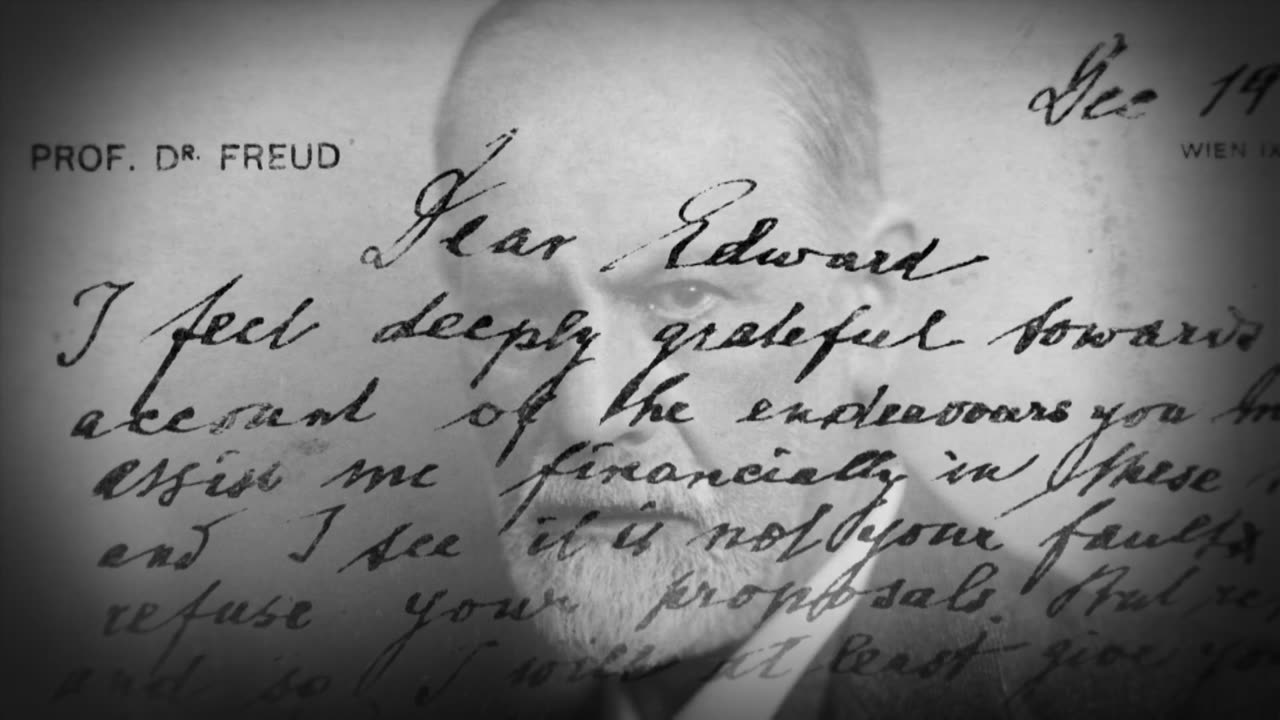 Dec 19
PROF. DR. FREUD
WIEN IX
Dear Edward
I feel deeply grateful towards
account of the endeavours you
assist me financially in these
and I see it is not your fault
refuse your proposals. But
and so I will at least give